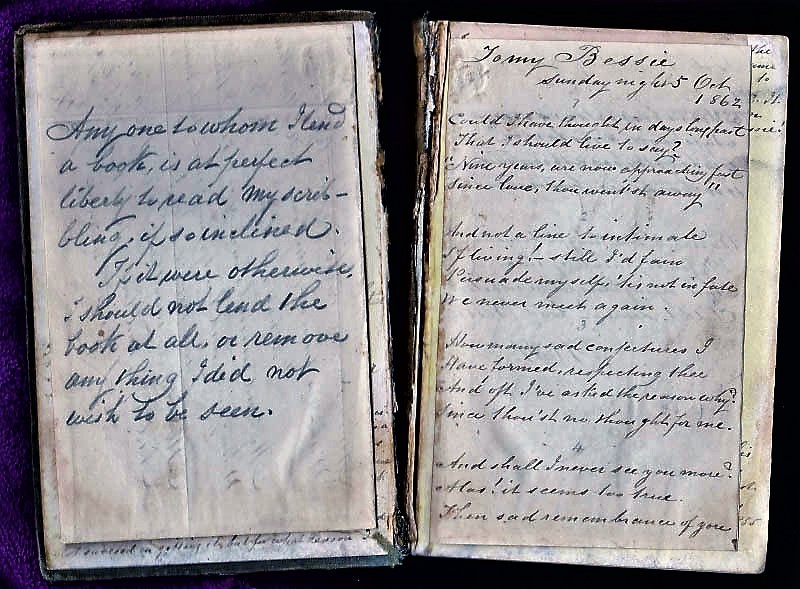 Any one to whom I lend
a book, is at perfect
liberty to read my scrib-
bling, if so inclined.
If it were otherwise,
I should not lend the
book at all, or remove
any thing I did not
wish to be seen.
To my Bessie
Sunday night 5 Oct
1862
Could I have thought in days long past
That I should live to say?
"Nine years, are now approaching fast
Since love, thou went'st away"
2
And not a line to intimate
If living! - still I'd fain
Persuade myself, 'tis not in fate
We never meet again.
3
How many sad conjectures I
Have formed, respecting thee
And oft I've asked the reason why?
Since thou'st no thought for me.
4
And shall I never see you more?
Alas! it seems too true.
Then sad remembrance of yore